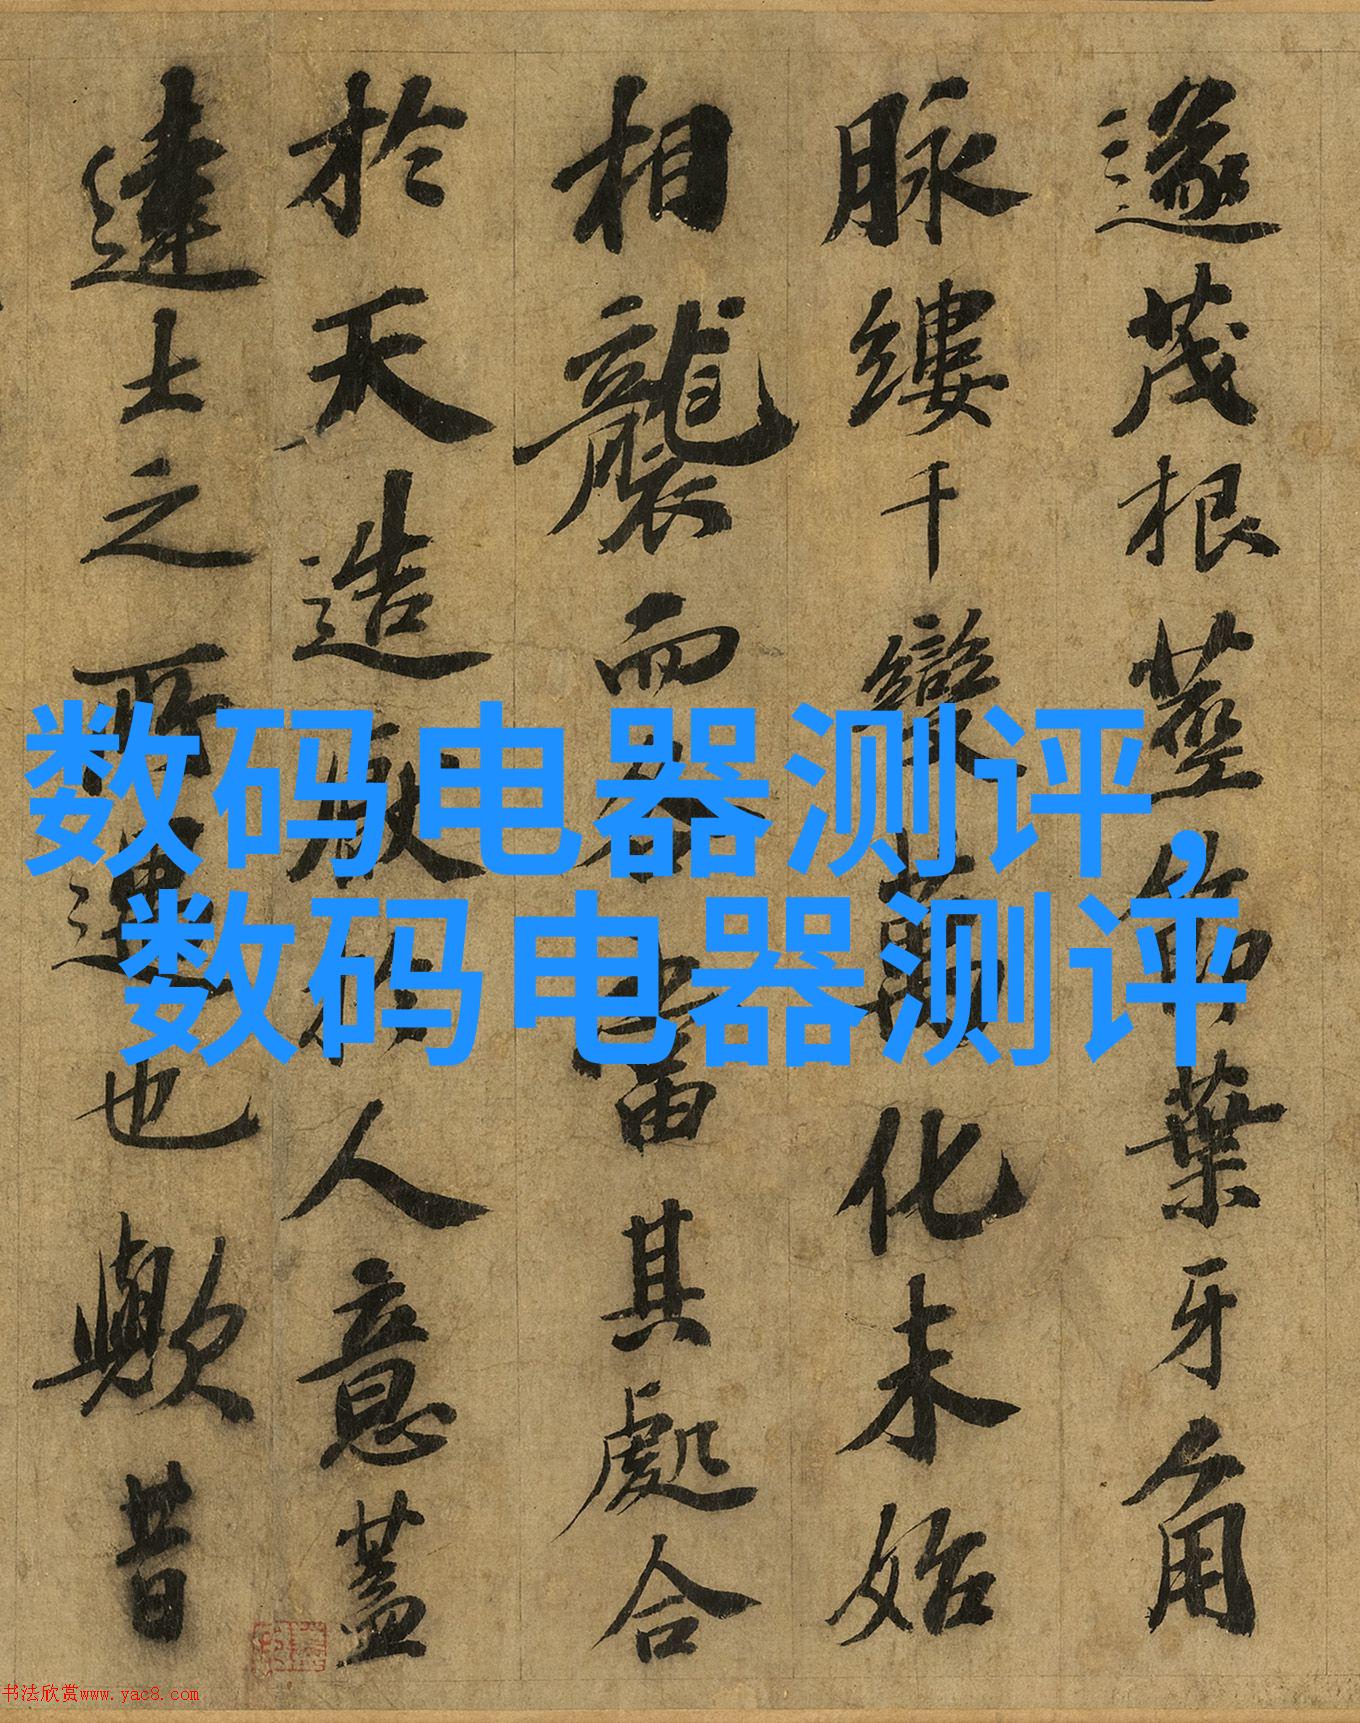 遂茂根莖節葉牙角
脉縷千變萬化未始
相襲而各當其處合
於天造厭於人意蓋
達士之所也歟昔
数码电器测评,
数码电器测评
书法欣赏www.yac8.com